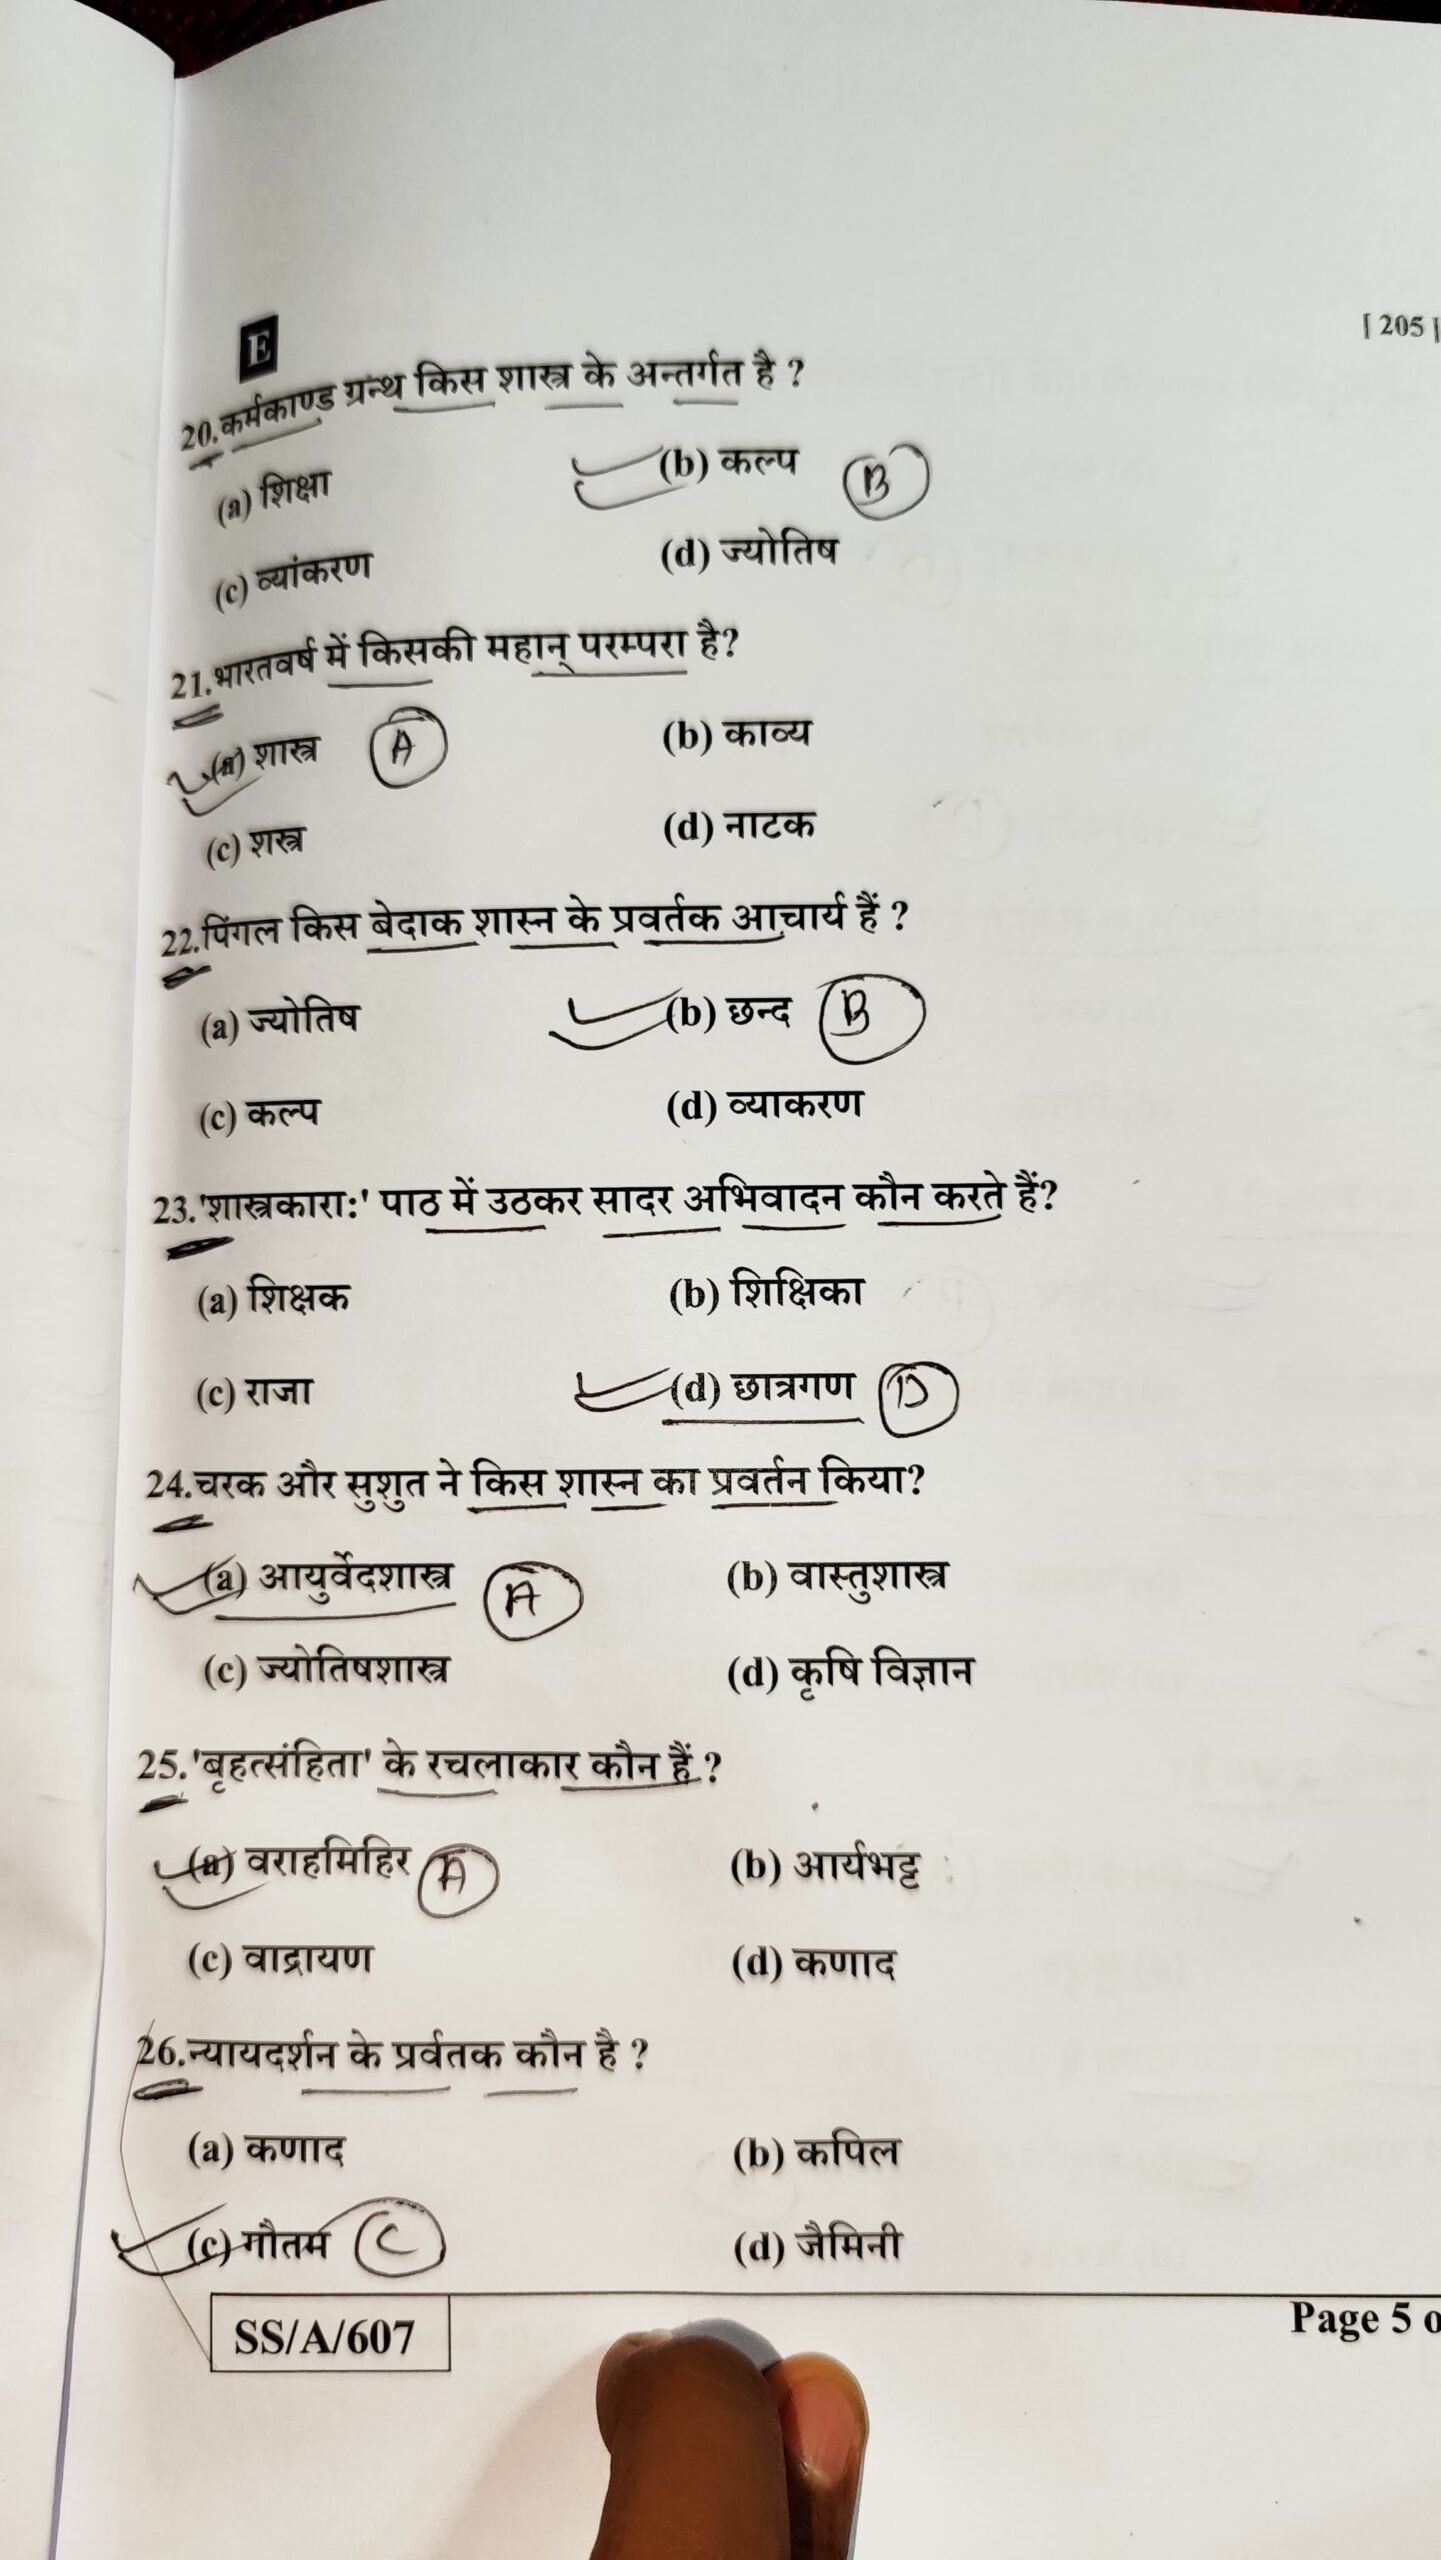 E
[ 205 ]
20.कर्मकाण्ड ग्रन्थ किस शास्त्र के अन्तर्गत है ?
(a) शिक्षा (b) कल्प B
(c) व्यांकरण (d) ज्योतिष
21.भारतवर्ष में किसकी महान् परम्परा है?
(a) शास्त्र A (b) काव्य
(c) शस्त्र (d) नाटक
22.पिंगल किस बेदाक शास्न के प्रवर्तक आचार्य हैं ?
(a) ज्योतिष (b) छन्द B
(c) कल्प (d) व्याकरण
23.'शास्त्रकाराः' पाठ में उठकर सादर अभिवादन कौन करते हैं?
(a) शिक्षक (b) शिक्षिका
(c) राजा (d) छात्रगण D
24.चरक और सुशुत ने किस शास्न का प्रवर्तन किया?
(a) आयुर्वेदशास्त्र A (b) वास्तुशास्त्र
(c) ज्योतिषशास्त्र (d) कृषि विज्ञान
25.'बृहत्संहिता' के रचलाकार कौन हैं ?
(a) वराहमिहिर A (b) आर्यभट्ट
(c) वाद्रायण (d) कणाद
26.न्यायदर्शन के प्रर्वतक कौन है ?
(a) कणाद (b) कपिल
(c) गौतम C (d) जैमिनी
SS/A/607
Page 5 o